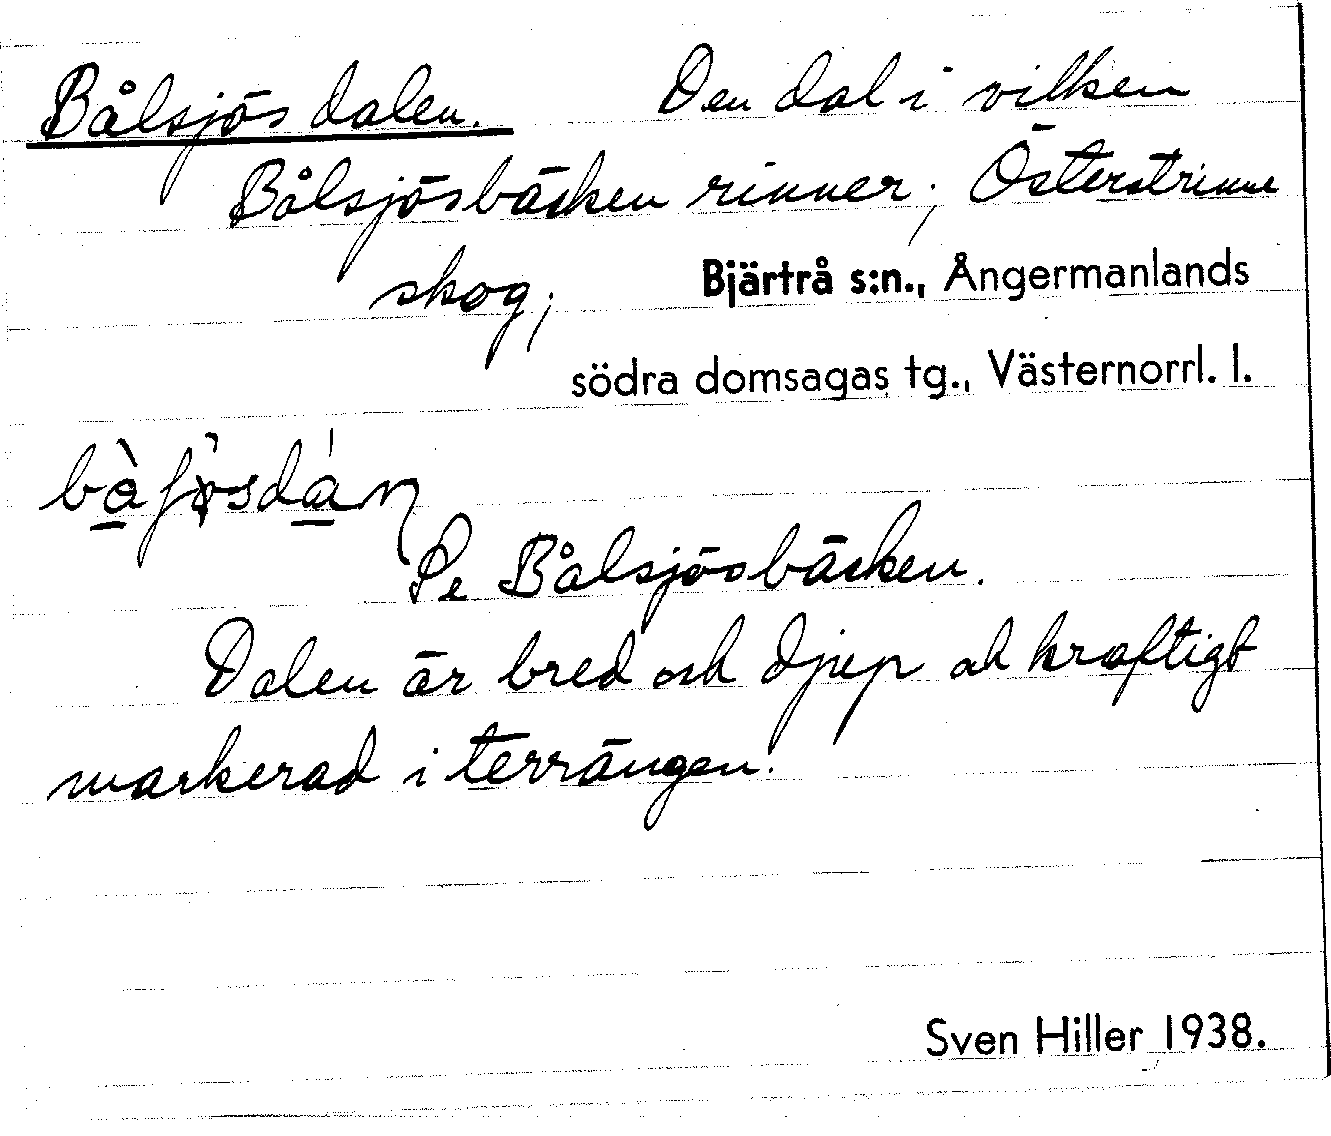 Bålsjösdalen. Den dal i vilken
Bålsjösbäcken rinner; Österstrinne
skog; Bjärtrå s:n., Ångermanlands
södra domsagas tg., Västernorrl. l.
Se Bålsjösbäcken.
Dalen är bred och djup och kraftigt
markerad i terrängen.
Sven Hiller 1938.